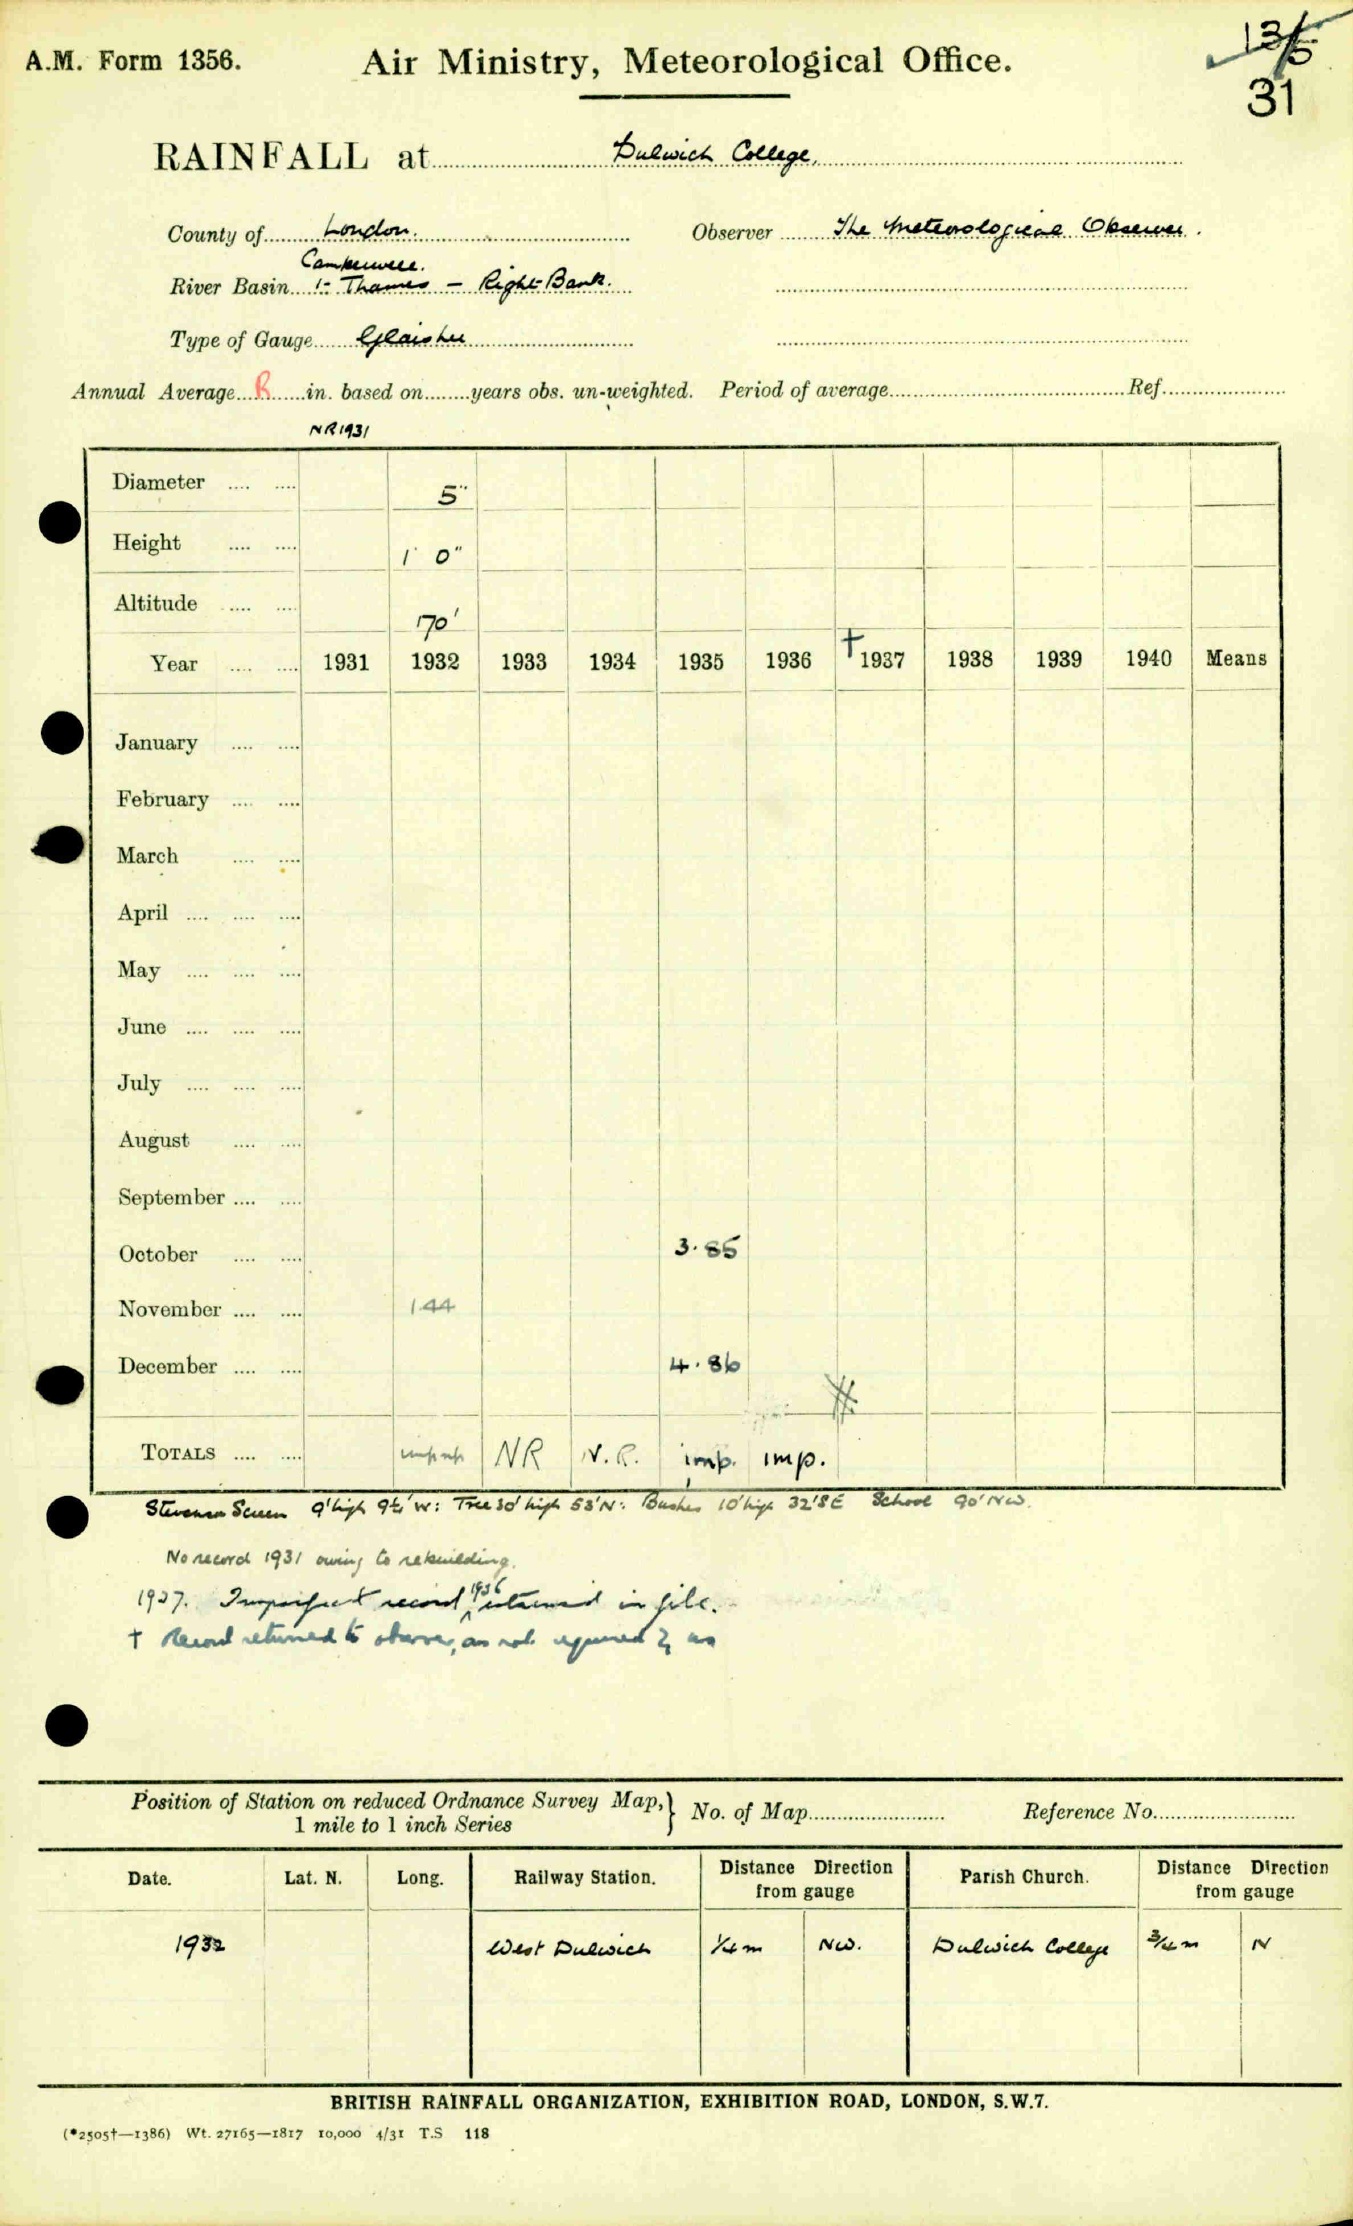 13/5
A.M. Form 1356. Air Ministry, Meteorological Office.
31
RAINFALL at Dulwich College.
County of London. Observer The Meteorological Observer.
Camberwell.
River Basin 1- Thames — Right Bank.
Type of Gauge Glaisher
Annual Average R in. based on years obs. un-weighted. Period of average Ref.
NR 1931
Diameter 5"
Height 1' 0"
Altitude 170'
Year 1931 1932 1933 1934 1935 1936 † 1937 1938 1939 1940 Means
January
February
March
April
May
June
July
August
September
October 3.85
November 1.44
December 4.86
TOTALS NR N.R. imp. imp.
Stevenson Screen 9' high 9½' W: Tree 30' high 53' N: Bushes 10' high 32' SE School 90' NW.
No record 1931 owing to rebuilding.
1937. Imperfect record 1936 returned in file.
† Record returned to observer, as not required by us
Position of Station on reduced Ordnance Survey Map, } No. of Map Reference No.
1 mile to 1 inch Series
Date. Lat. N. Long. Railway Station. Distance Direction from gauge Parish Church. Distance Direction from gauge
1932 West Dulwich ¼ m NW. Dulwich College ¾ m N
BRITISH RAINFALL ORGANIZATION, EXHIBITION ROAD, LONDON, S.W.7.
(*2505†—1386) Wt. 27165—1817 10,000 4/31 T.S 118